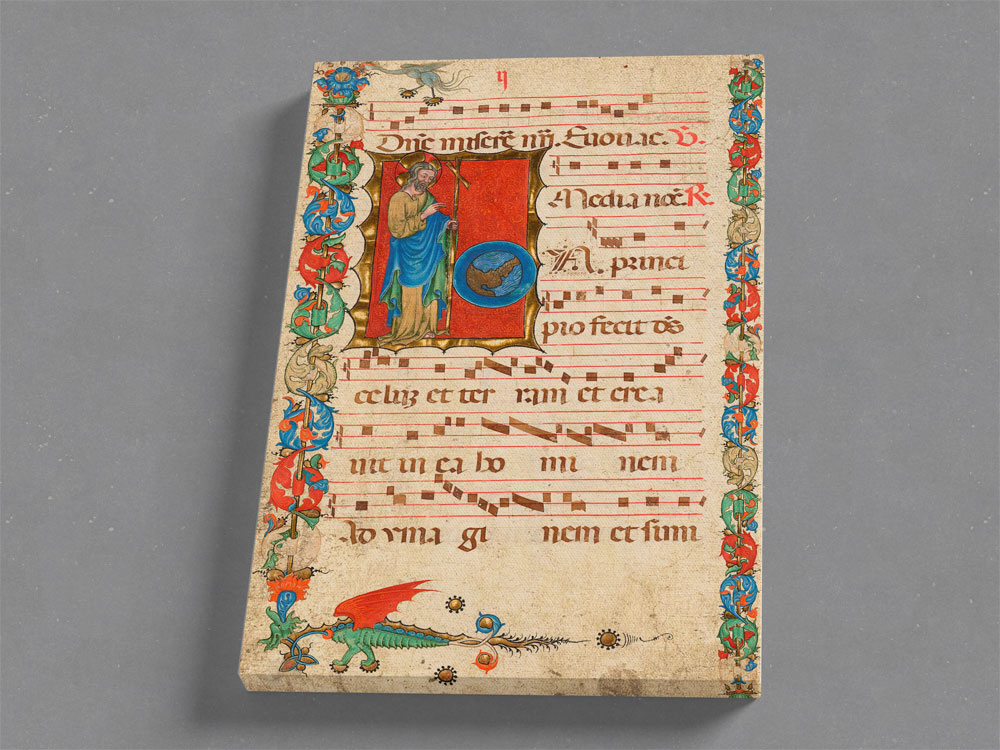 ıȷ
Dñe miserẽ mȷ̃. Euouae. ℣.
Media noc̃. ℟.
IN. princi
pio fecit ds̃
celuʒ et ter ram et crea
uit in ea ho mi nem
Ad yma gi nem et simi